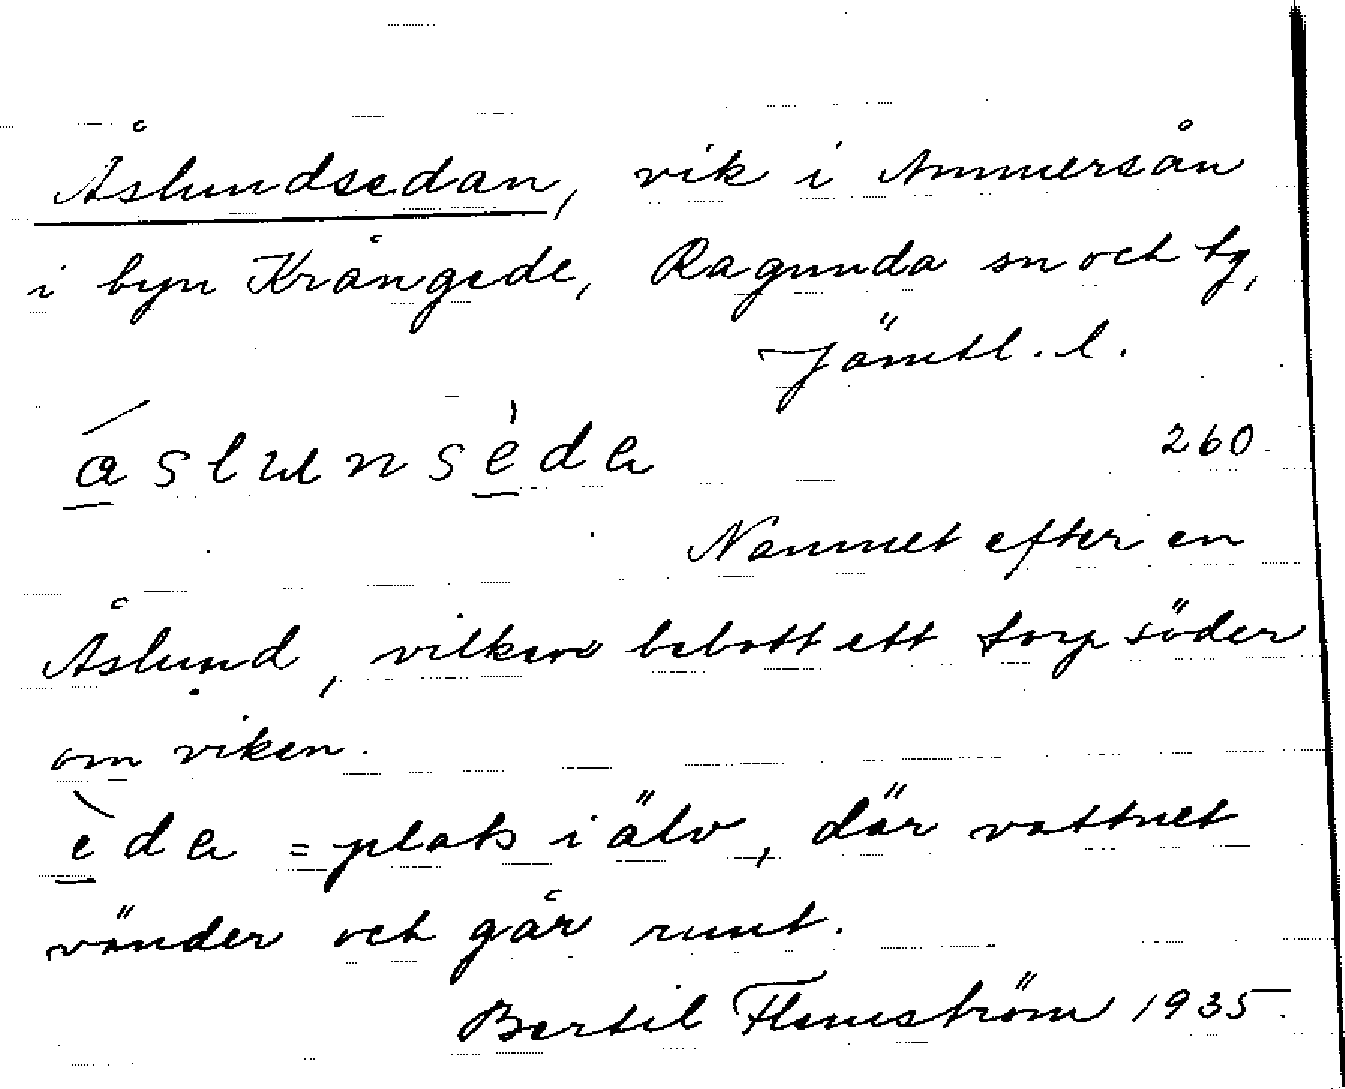 Åslundsedan, vik i Ammersån
i byn Krångede, Ragunda sn och tg,
Jämtl. l.
áslunsèda
260
Namnet efter en
Åslund, vilken bebott ett torp söder
om viken.
èda = plats i älv, där vattnet
vänder och går runt.
Bertil Flemström 1935.